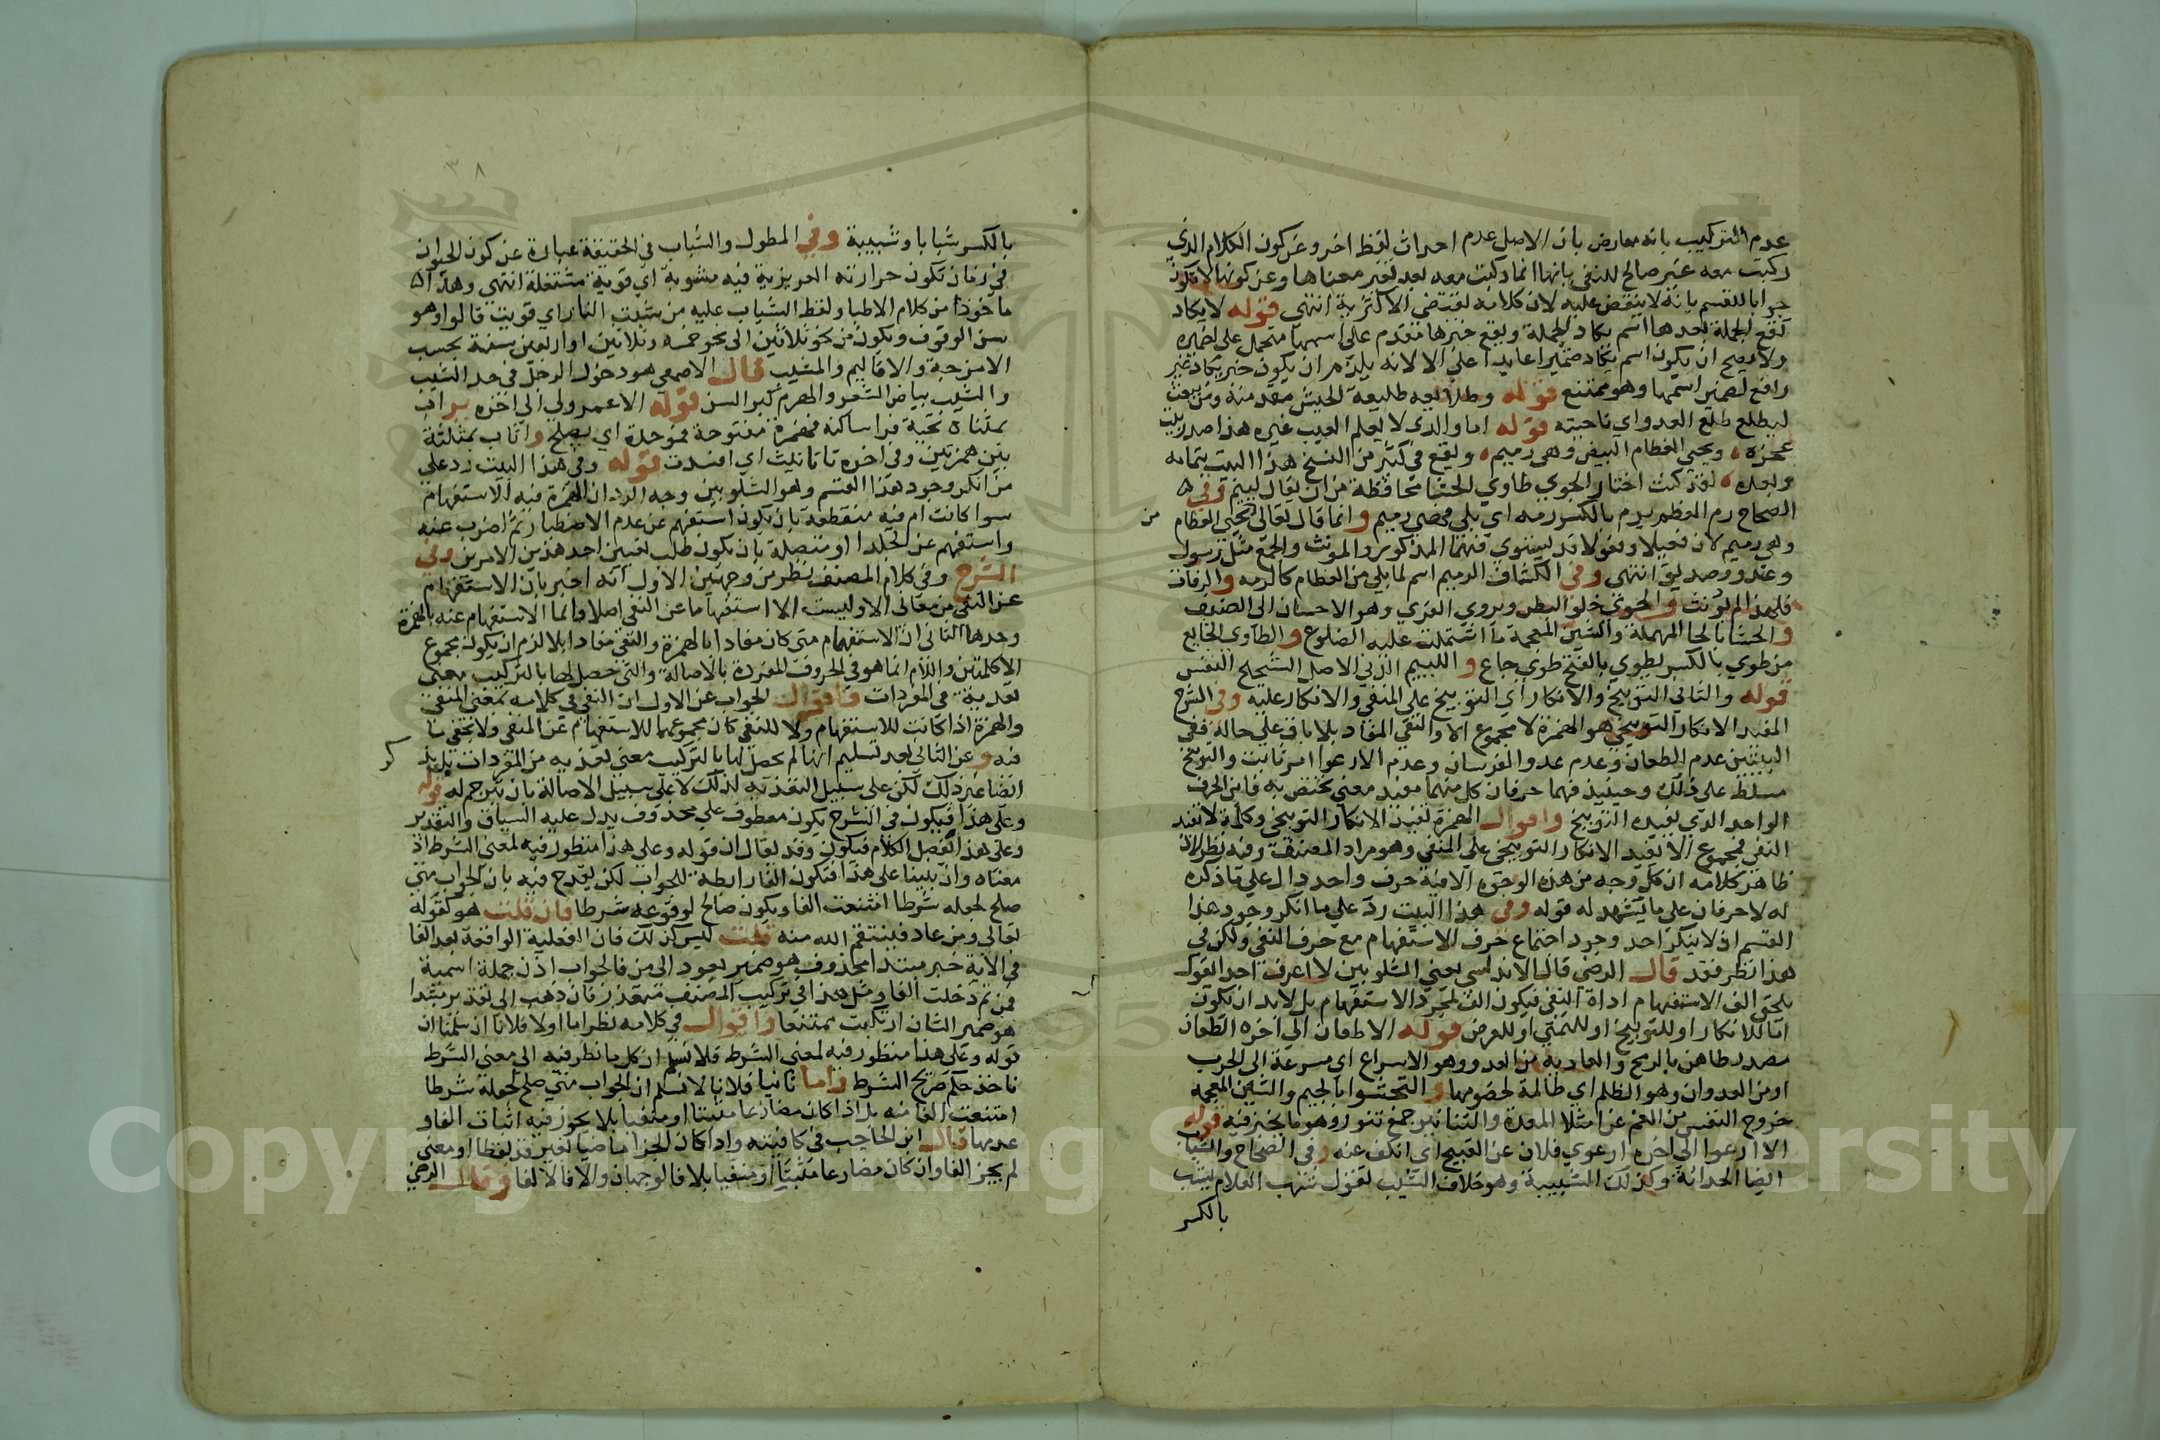 عدم التركيب بانه معارض بان الاصل عدم احداث لفظ اخر وعن كون الكلام الذي
ركبت معه غير صالح للنفي بانها انما ركبت معه بعد تغير معناها وعن كونها لا تكون
جوابا للقسم بانه لا ينقض عليه لان كلامه يقتضي الاكثرية انتهي قوله لا يكاد
تقع الجملة بعدها اسم يكاد الجملة ويقع خبرها متقدم على اسمها متحمل على ضميره
ولا يصح ان يكون اسم يكاد ضميرا عايدا على الا لانه يلزم ان يكون خبر يكاد غير
رافع لضمير اسمها وهو ممتنع قوله وطلايعه طليعة الجيش مقدمته ومن يبعث
ليطلع طلع العدو اي ناحيته قوله اما والذي لا يعلم الغيب غيره هذا صدر بيت
عجزه ويحيي العظام البيض وهي رميم ويقع في كثير من النسخ هذا البيت بتمامه
وبعده لقد كنت اختار الجوي طاوي الحشا محافظة من ان يقال لييم وفي
الصحاح رم العظم يرم بالكسر رمه اي بلي فهي رميم وانما قال تعالى يحيي العظام
وهي رميم لان فعيلا وفعولا قد يستوي فيهما المذكور والمونث والجمع مثل رسول
وعدو وصديق انتهى وفي الكشاف الرميم اسم لما بلي من العظام كالرمه والرفات
فلهذا لم يونث والجوي خلو البطن ويروي القري وهو الاحسان الى الضيف
والحشا بالحا المهملة والشين المعجمة ما اشتملت عليه الضلوع والطاوي الجايع
من طوي بالكسر يطوي بالفتح طوي جاع واللييم الدني الاصل الشحيح النفس
قوله والثاني التوبيخ والانكار اي التوبيخ على المنفي والانكار عليه وفي الشرح
المفيد الانكار التوبيخي هو الهمزة لا مجموع الا والنفي المفاد بلا باق على حاله ففي
البيتين عدم الطعان وعدم عدو الفرسان وعدم الارعوا امر ثابت والتوبيخ
مسلط على ذلك وحينيذ فهما حرفان كل منهما مفيد معنى يختص به فاين الحرف
الواحد الذي يفيده التوبيخ واقول الهمزة تفيد الانكار التوبيخي وكلمة لا تفيد
النفي فمجموع الا تفيد الانكار التوبيخي على المنفي وهو مراد المصنف وفيه نظر لان
ظاهر كلامه ان كل وجه من هذه الوجوه الاتية حرف واحد دال على ما ذكره
له لا حرفان على ما يشهد له قوله وفي هذا البيت رد على ما انكر وجود هذا
القسم اذ لا ينكر احد وجود اجتماع حرف الاستفهام مع حرف النفي ولكن في
هذا نظر فقد قال الرضي قال الاندلسي يعني الشلوبين لا اعرف احد القول
بلحق الف الاستفهام اداة النفي فيكون الف لمجرد الاستفهام بل لا بد ان يكون
اما للانكار او للتوبيخ او للتمني او للعرض قوله الاطعان الي اخره الطعان
مصدر طاعن بالرمح والعادية من العدو وهو الاسراع اي مسرعة الى الحرب
او من العدوان وهو الظلم اي ظالمة لخصومها والتجشوا بالجيم والشين المعجمة
خروج النفس من الفم عن امتلا المعدة والتنانير جمع تنور وهو ما يخبز فيه قوله
الا ارعوا الي اخره ارعوي فلان عن القبيح اي انكف عنه وفي الصحاح والشباب
ايضا الحداثة وكذلك الشبيبة وهو خلاف الشيب تقول شب الغلام يشب
بالكسر
من
٣٨
بالكسر شبابا وشبيبة وفي المطول والشباب في الحقيقة عبارة عن كون الحيوان
في زمان تكون حرارته الغريزية فيه مشبوبة اي قوية مشتعلة انتهى وهذا
ماخوذ من كلام الاطبا ولفظ الشباب عليه من شبت النار اي قويت قالوا وهو
سن الوقوف ويكون من نحو ثلاثين الى نحو خمسه وثلاثين او اربعين سنة بحسب
الامزجة والاقاليم والمشيب قال الاصمعي هو دخول الرجل في حد الشيب
والشيب بياض الشعر والهرم كبر السن قوله الاعمر ولى الى اخره يراب
بمثناة تحتية فراساكنه فهمزة مفتوحة فموحدة اي يصلح واثاب بمثلثة
بين همزتين وفي اخره تا تانيث اي افسدت قوله وفي هذا البيت رد على
من انكر وجود هذا القسم وهو الشلوبين وجه الرد ان الهمزة فيه للاستفهام
سوا كانت ام فيه منقطعة بان يكون استفهم عن عدم الاصطبار ثم اضرب عنه
واستفهم عن الجلد او متصلة بان يكون طلب تعيين احد هذين الامرين وفي
الشرح وفي كلام المصنف نظر من وجهين الاول انه اخبر بان الاستفهام
عن النفي من معاني الا وليست الا استفهاما عن النفي اصلا وانما الاستفهام عنه بالهمزة
وحدها الثاني ان الاستفهام متى كان مفادا بالهمزة والنفي مفاد بلا لزم ان يكون مجموع
الا كلمتين والكلام انما هو في الحروف المفردة بالاصالة والتي حصل لها بالتركيب معنى
تعديته في المفردات فاقول الجواب عن الاول ان النفي في كلامه بمعنى المنفي
والهمزة اذا كانت للاستفهام ولا للنفي كان مجموعهما للاستفهام عن المنفي ولا يخفى ما
فيه وعن الثاني بعد تسليم انها لم يحصل لها بالتركيب معنى تعديه من المفردات بل يذكر
ايضا غير ذلك لكن على سبيل التبعية لذلك لا على سبيل الاصالة بان يترجم له قوله
وعلى هذا فيكون في الشرح يكون معطوف على محذوف يدل عليه السياق والتقدير
وعلى هذا انفصل الكلام فيكون وقد يقال ان قوله وعلى هذا منظور فيه لمعنى الشرط اذ
معناه وان بنينا على هذا فتكون الفا رابطة للجواب لكن يقدح فيه بان الجواب متى
صلح لجعله شرطا امتنعت الفا ويكون صالح لوقوعه شرطا فان قلت هو كقوله
تعالى ومن عاد فينتقم الله منه قلت ليس كذلك فان الفعلية الواقعة بعد الفا
في الاية خبر مبتدا محذوف هو ضمير يعود الى من فالجواب اذن جملة اسمية
فمن ثم دخلت الفا ومثل هذا في تركيب المصنف متعذر فان ذهب الى تقدير مبتدا
هو ضمير الشان ارتكبت ممتنعا واقول في كلامه نظر اما اولا فلانا ان سلمنا ان
قوله وعلى هذا منظور فيه لمعنى الشرط فلا نسلم ان كل ما نظر فيه الى معنى الشرط
ياخذ حكم صريح الشرط واما ثانيا فلانا لا نسلم ان الجواب متى صلح لجعله شرطا
امتنعت الفا منه بل اذا كان مضارعا مثبتا او منفيا بلا يجوز فيه اثبات الفا و
عدمها قال ابن الحاجب في كافيته واذا كان الجزا ماضيا بغير قد لفظا او معنى
لم يجز الفا وان كان مضارعا مثبتا او منفيا بلا فالوجهان والا فالفا وقال الرضي